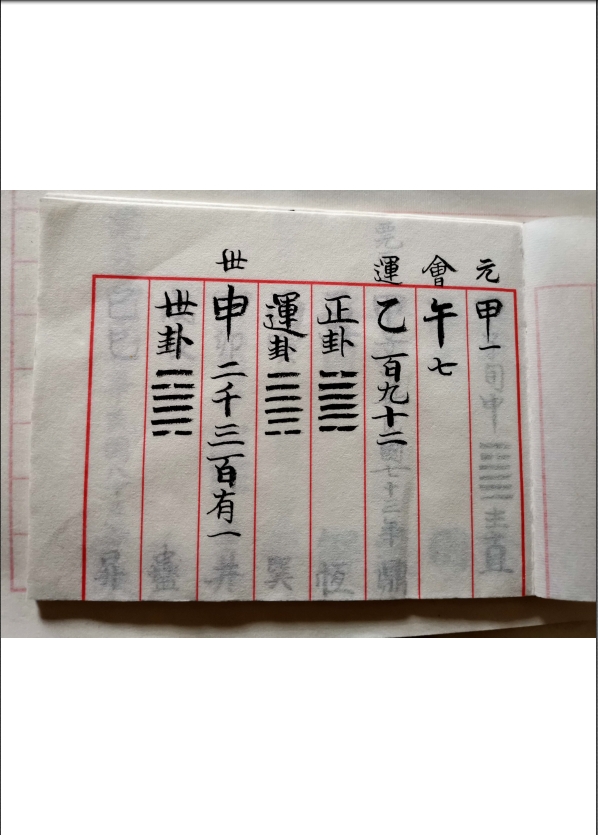 元
甲一
會
午七
運
乙百九十二
正卦
運卦
世
申二千三百有一
世卦